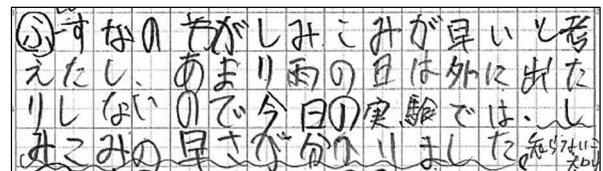 ふすなのそがしみこみが早いと考
えたし、あまり雨の日は外に出た
りしないので今日の実験では、し
みこみの早さが分かりました。知らない